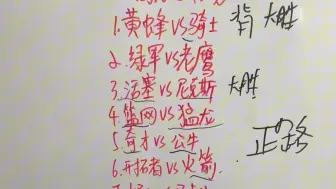 1.黄蜂vs骑士 背 大胜
2.绿军vs老鹰
3.活塞vs尼克斯 大胜
4.篮网vs猛龙
5.奇才vs公牛 正路
6.开拓者vs火箭